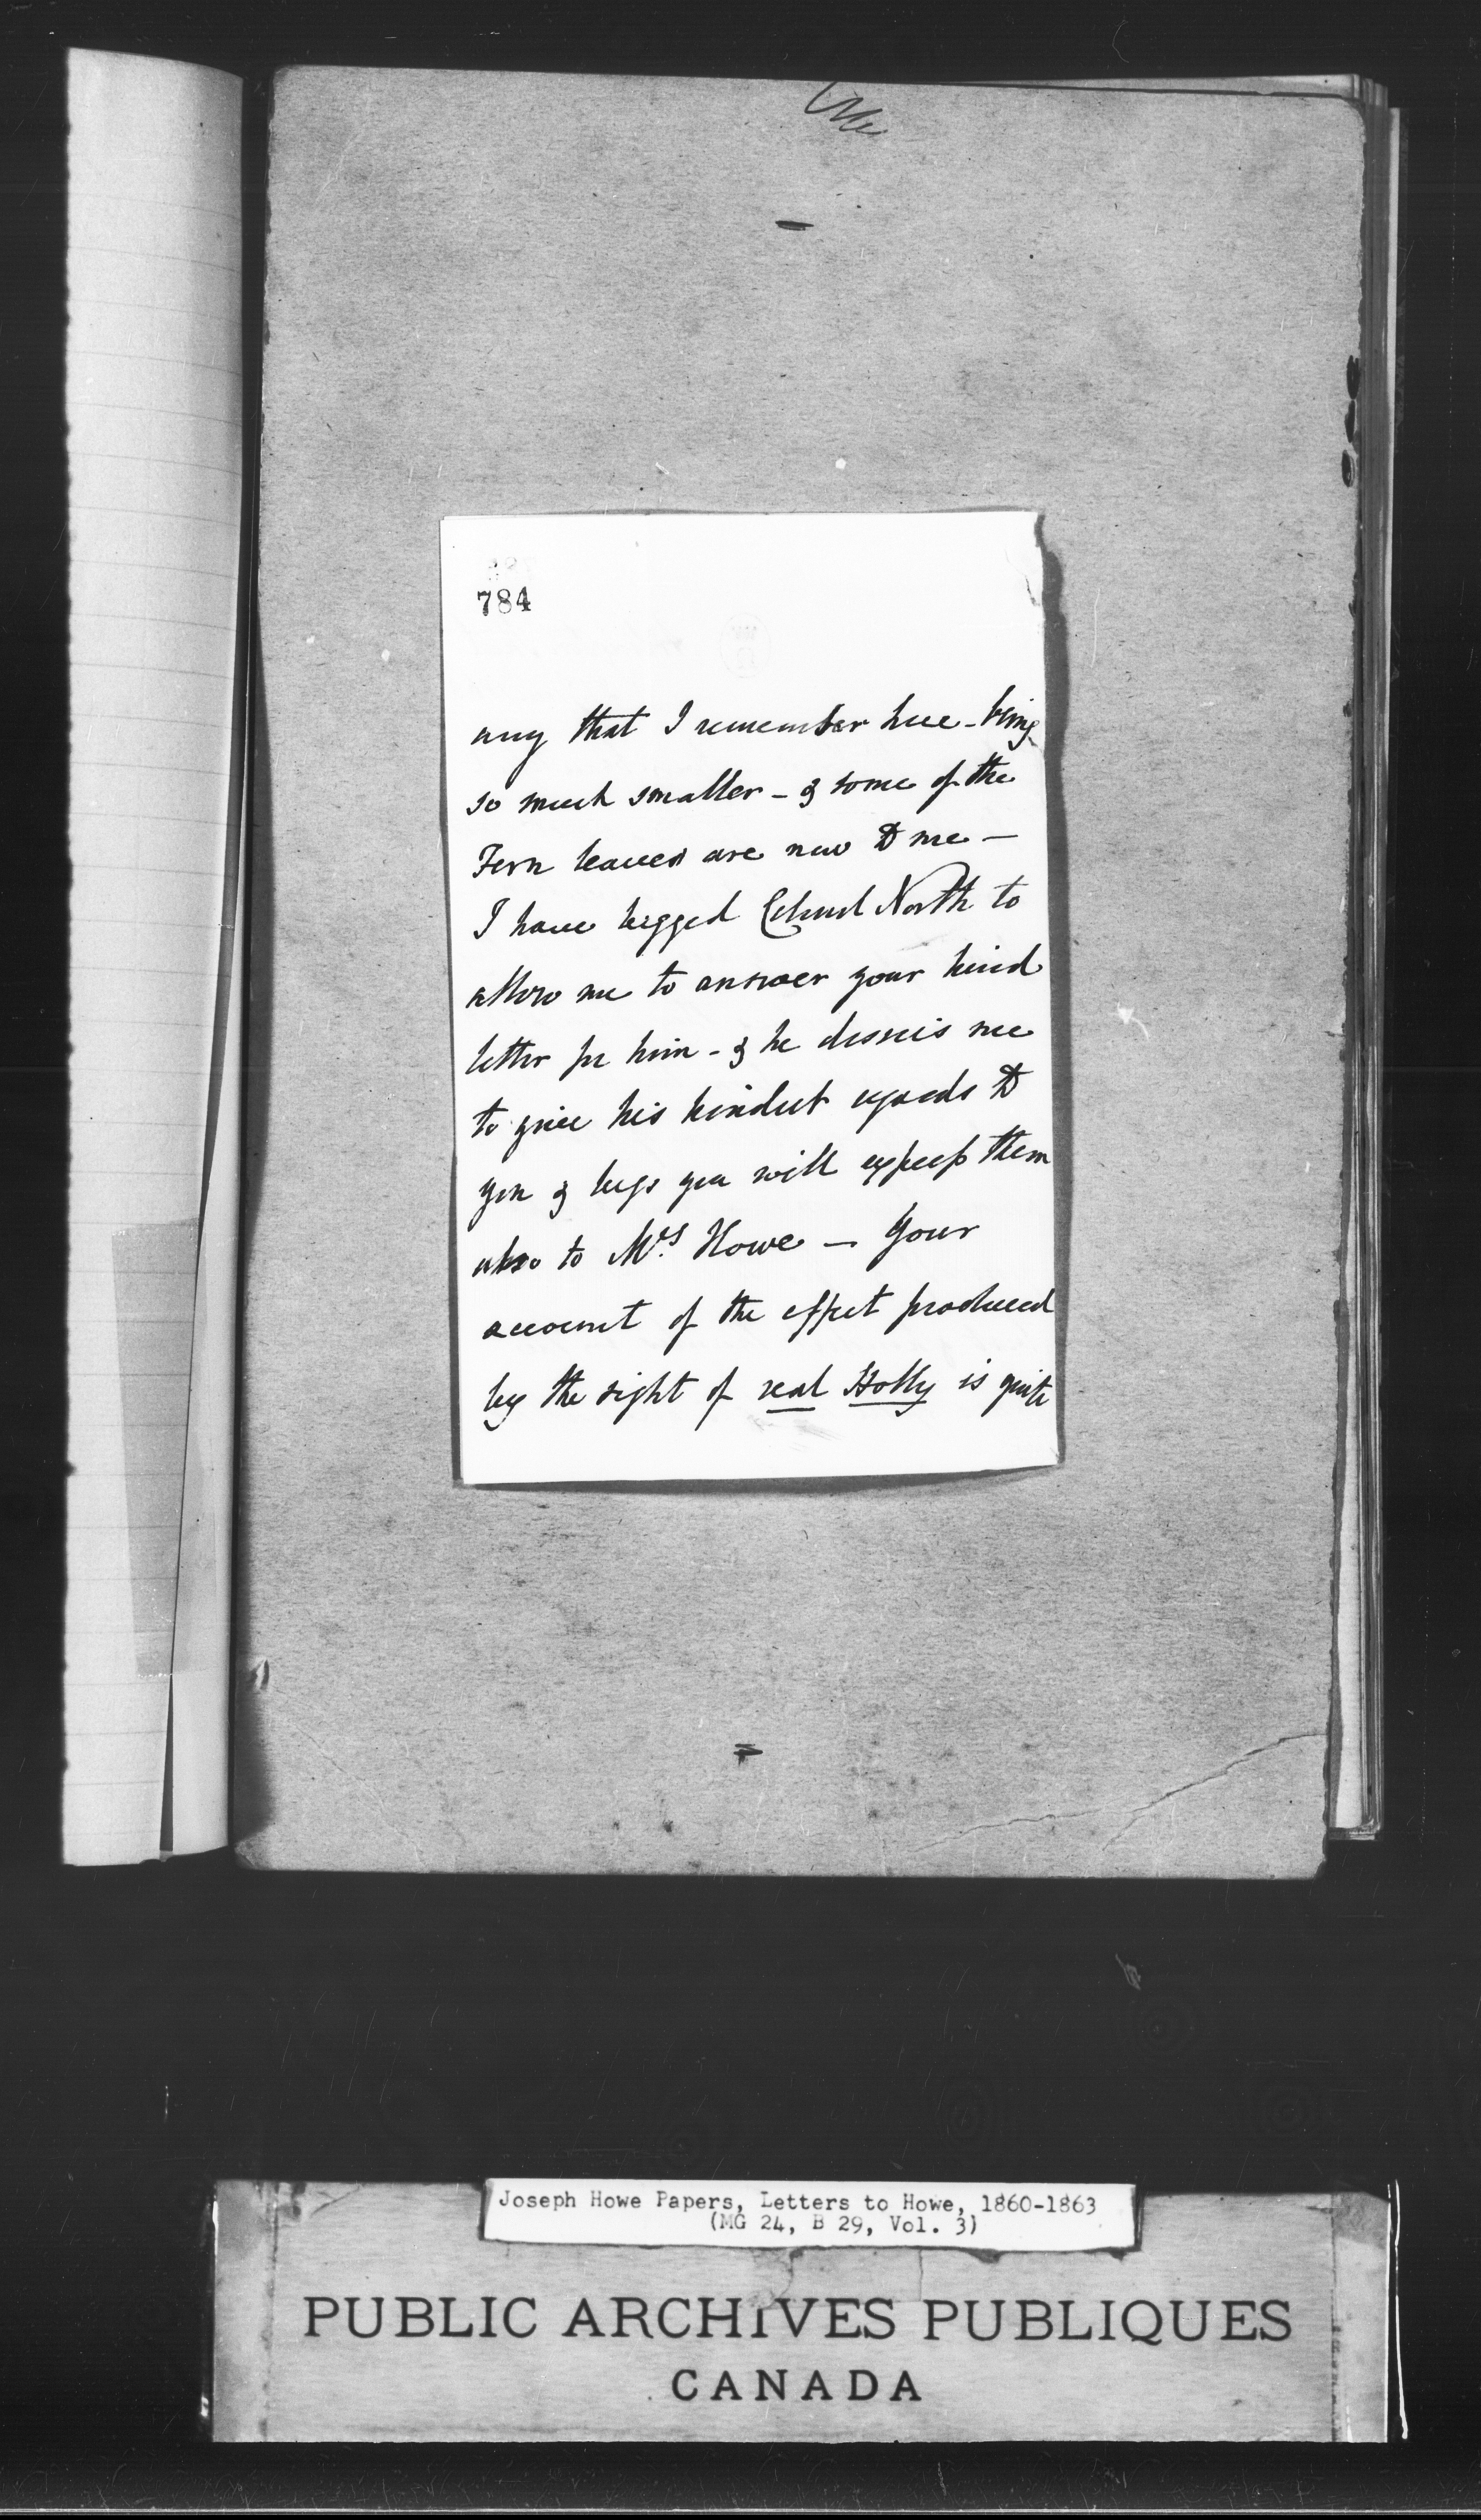 784
any that I remember here - being
so much smaller - & some of the
Fern leaves are new to me -
I have begged Colonel North to
allow me to answer your kind
letter for him - & he desires me
to give his kindest regards to
you & begs you will express them
also to Mrs. Howe - Your
account of the effect produced
by the sight of real Holly is quite
Joseph Howe Papers, Letters to Howe, 1860-1863
(MG 24, B 29, Vol. 3)
PUBLIC ARCHIVES PUBLIQUES
CANADA